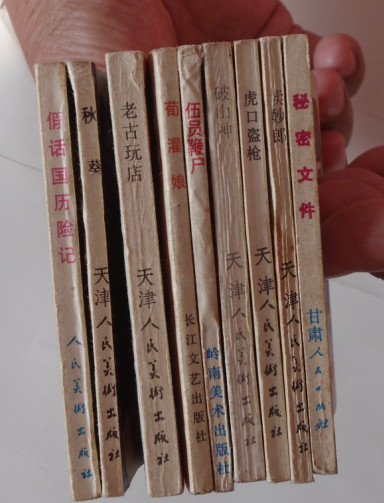 假话国历险记
人民美術出版社
秋葵
天津人民美術出版社
老古玩店
天津人民美術出版社
荀灌娘
长江文艺出版社
伍员鞭尸
岭南美术出版社
破山神
天津人民美術出版社
虎口盗枪
天津人民美術出版社
卖妙郎
天津人民美術出版社
秘密文件
甘肃人民出版社